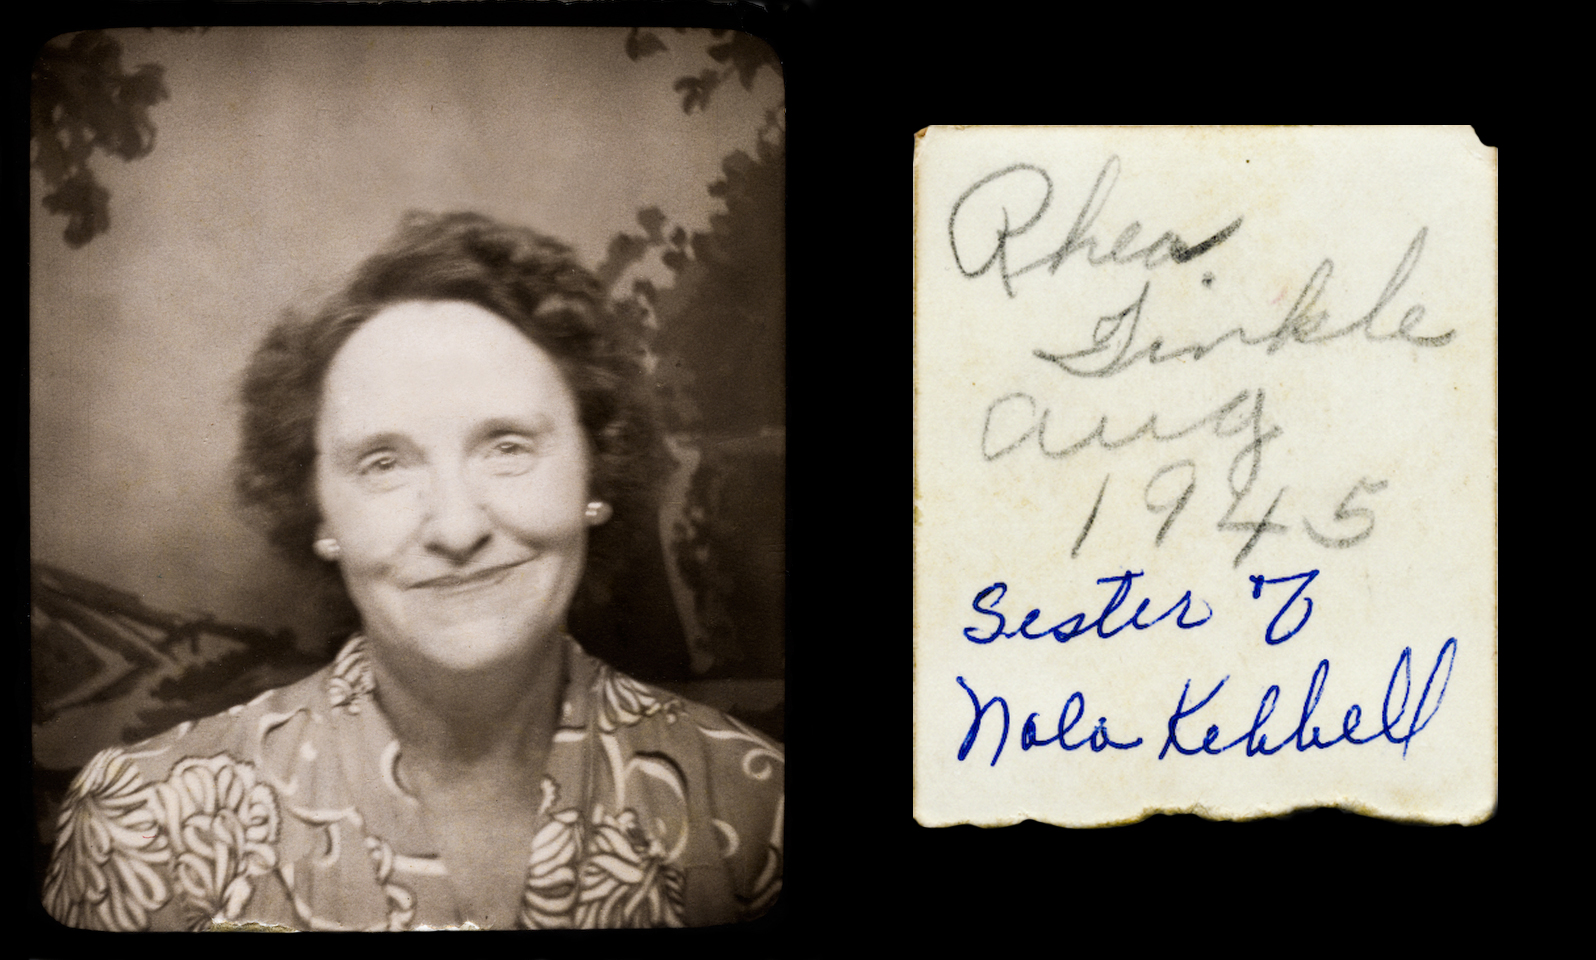 Rhea
Tinkle
Aug
1945
Sester of
Nola Kebbell